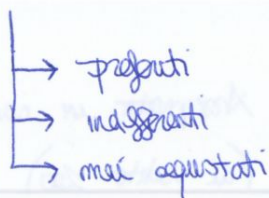 → preferiti
→ indifferenti
→ mai acquistati